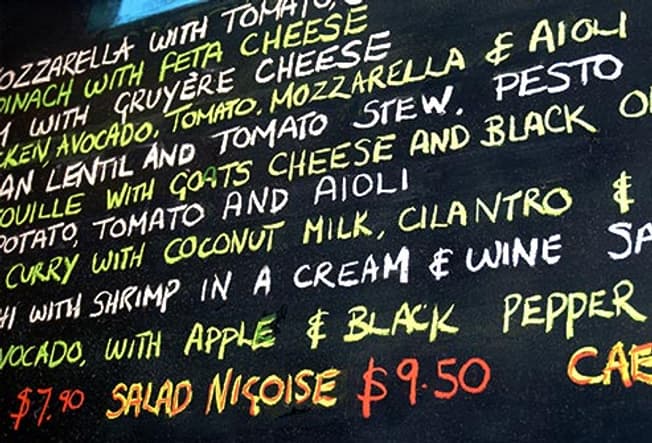 MOZZARELLA WITH TOMATO,
WITH FETA CHEESE
WITH GRUYÈRE CHEESE
AVOCADO, TOMATO, MOZZARELLA & AIOLI
LENTIL AND TOMATO STEW. PESTO
WITH GOATS CHEESE AND BLACK
POTATO, TOMATO AND AIOLI
CURRY WITH COCONUT MILK, CILANTRO &
WITH SHRIMP IN A CREAM & WINE
AVOCADO, WITH APPLE & BLACK PEPPER
$7.90 SALAD NIÇOISE $9.50